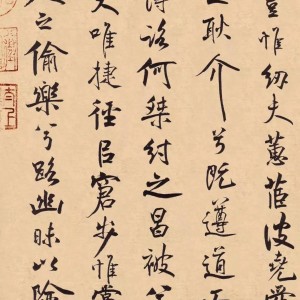 豈惟紉夫蕙茝彼堯舜
之耿介兮既遵道而
得路何桀紂之昌被兮
夫唯捷徑㠯窘步惟黨
人之偷樂兮路幽昧以險